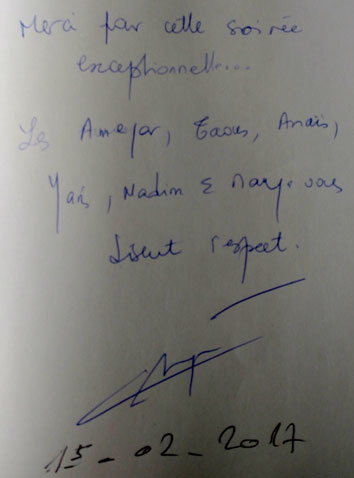 Merci pour cette soirée
exceptionnelle...
Les Ameyar, Taous, Anaïs,
Yanis, Nadim & vous
disent respect.
15-02-2017